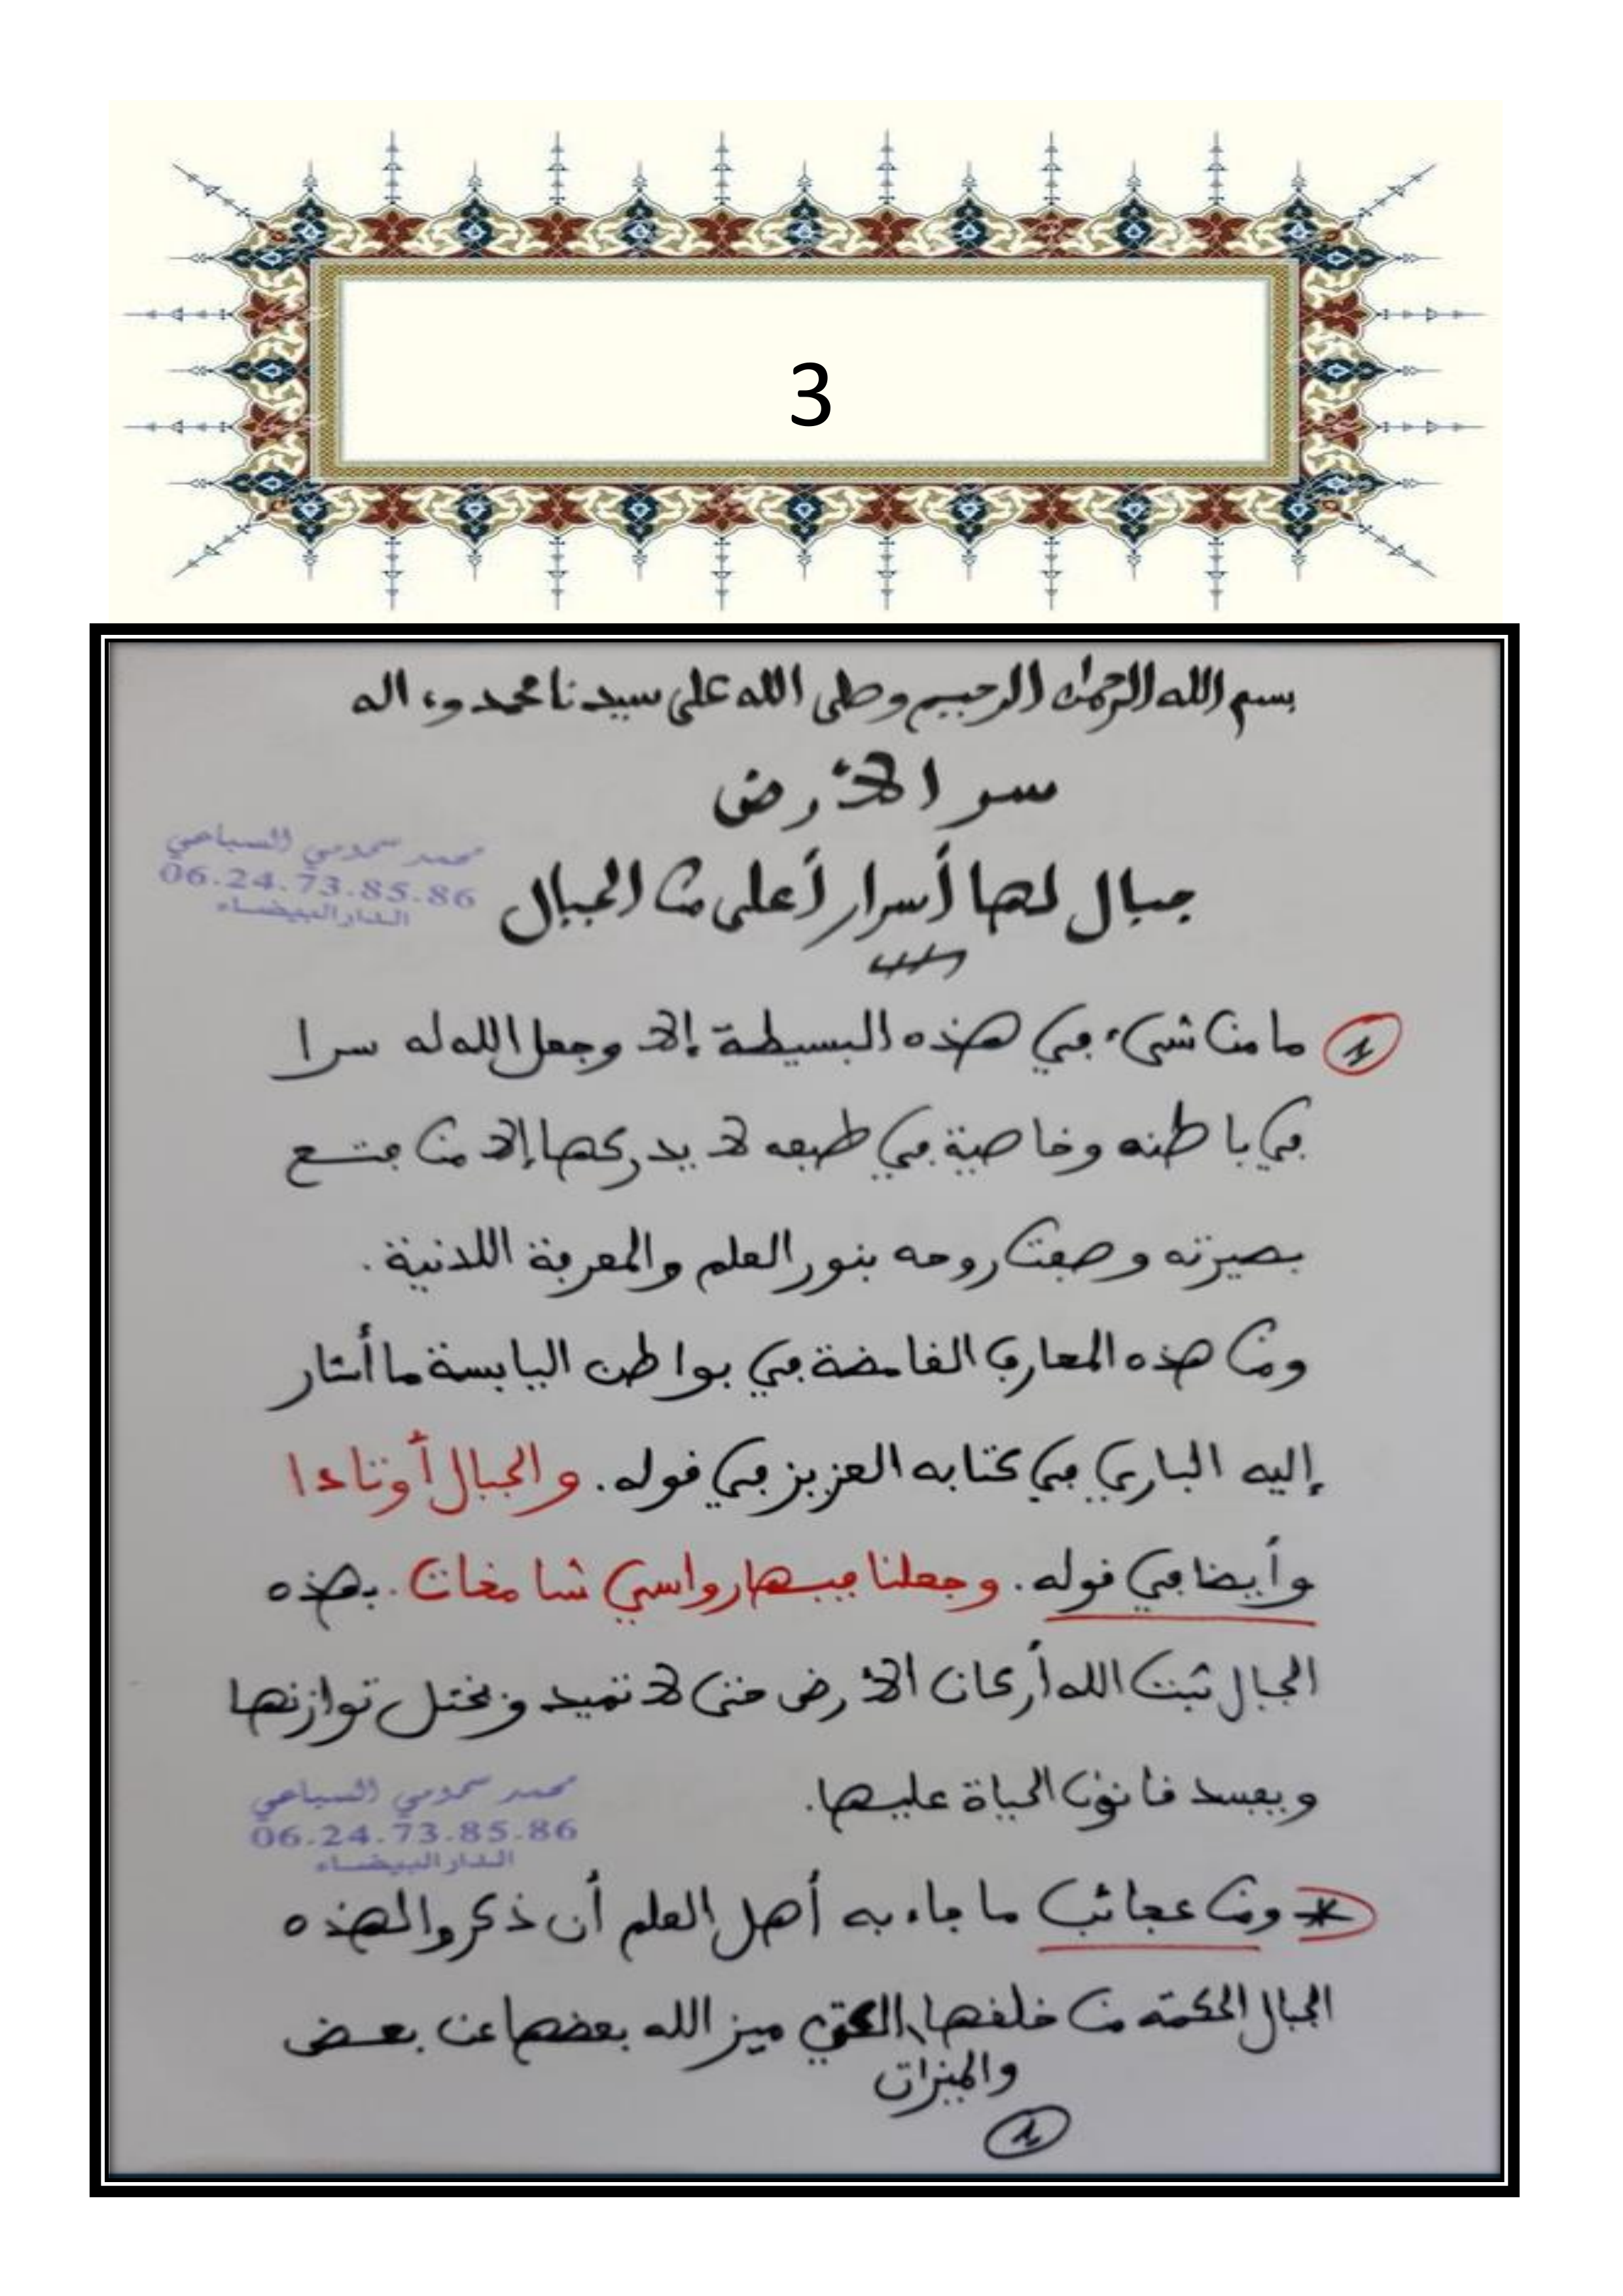 3
بسم الله الرحمان الرحيم وصلى الله على سيدنا محمد وءاله
سر الأرض
محمد السباعي
06.24.73.85.86
الدار البيضاء
جبال لها أسرار أعلى من الجبال
1 ما من شيء في هذه البسيطة إلا وجعل الله له سرا
في باطنه وخاصية في طبعه لا يدركها إلا من فتح
بصيرته وصفت روحه بنور العلم والمعرفة اللدنية.
ومن هذه المعارف الغامضة في بواطن اليابسة ما أشار
إليه الباري في كتابه العزيز في قوله. والجبال أوتادا
وأيضا في قوله. وجعلنا فيها رواسي شامخات. بهذه
الجبال ثبت الله أركان الأرض حتى لا تميد وتختل توازنها
ويفسد قانون الحياة عليها.
محمد السباعي
06.24.73.85.86
الدار البيضاء
* ومن عجائب ما جاء به أهل العلم أن ذكروا لهذه
الجبال الحكمة من خلقها، التي ميز الله بعضها عن بعض
والميزات
1